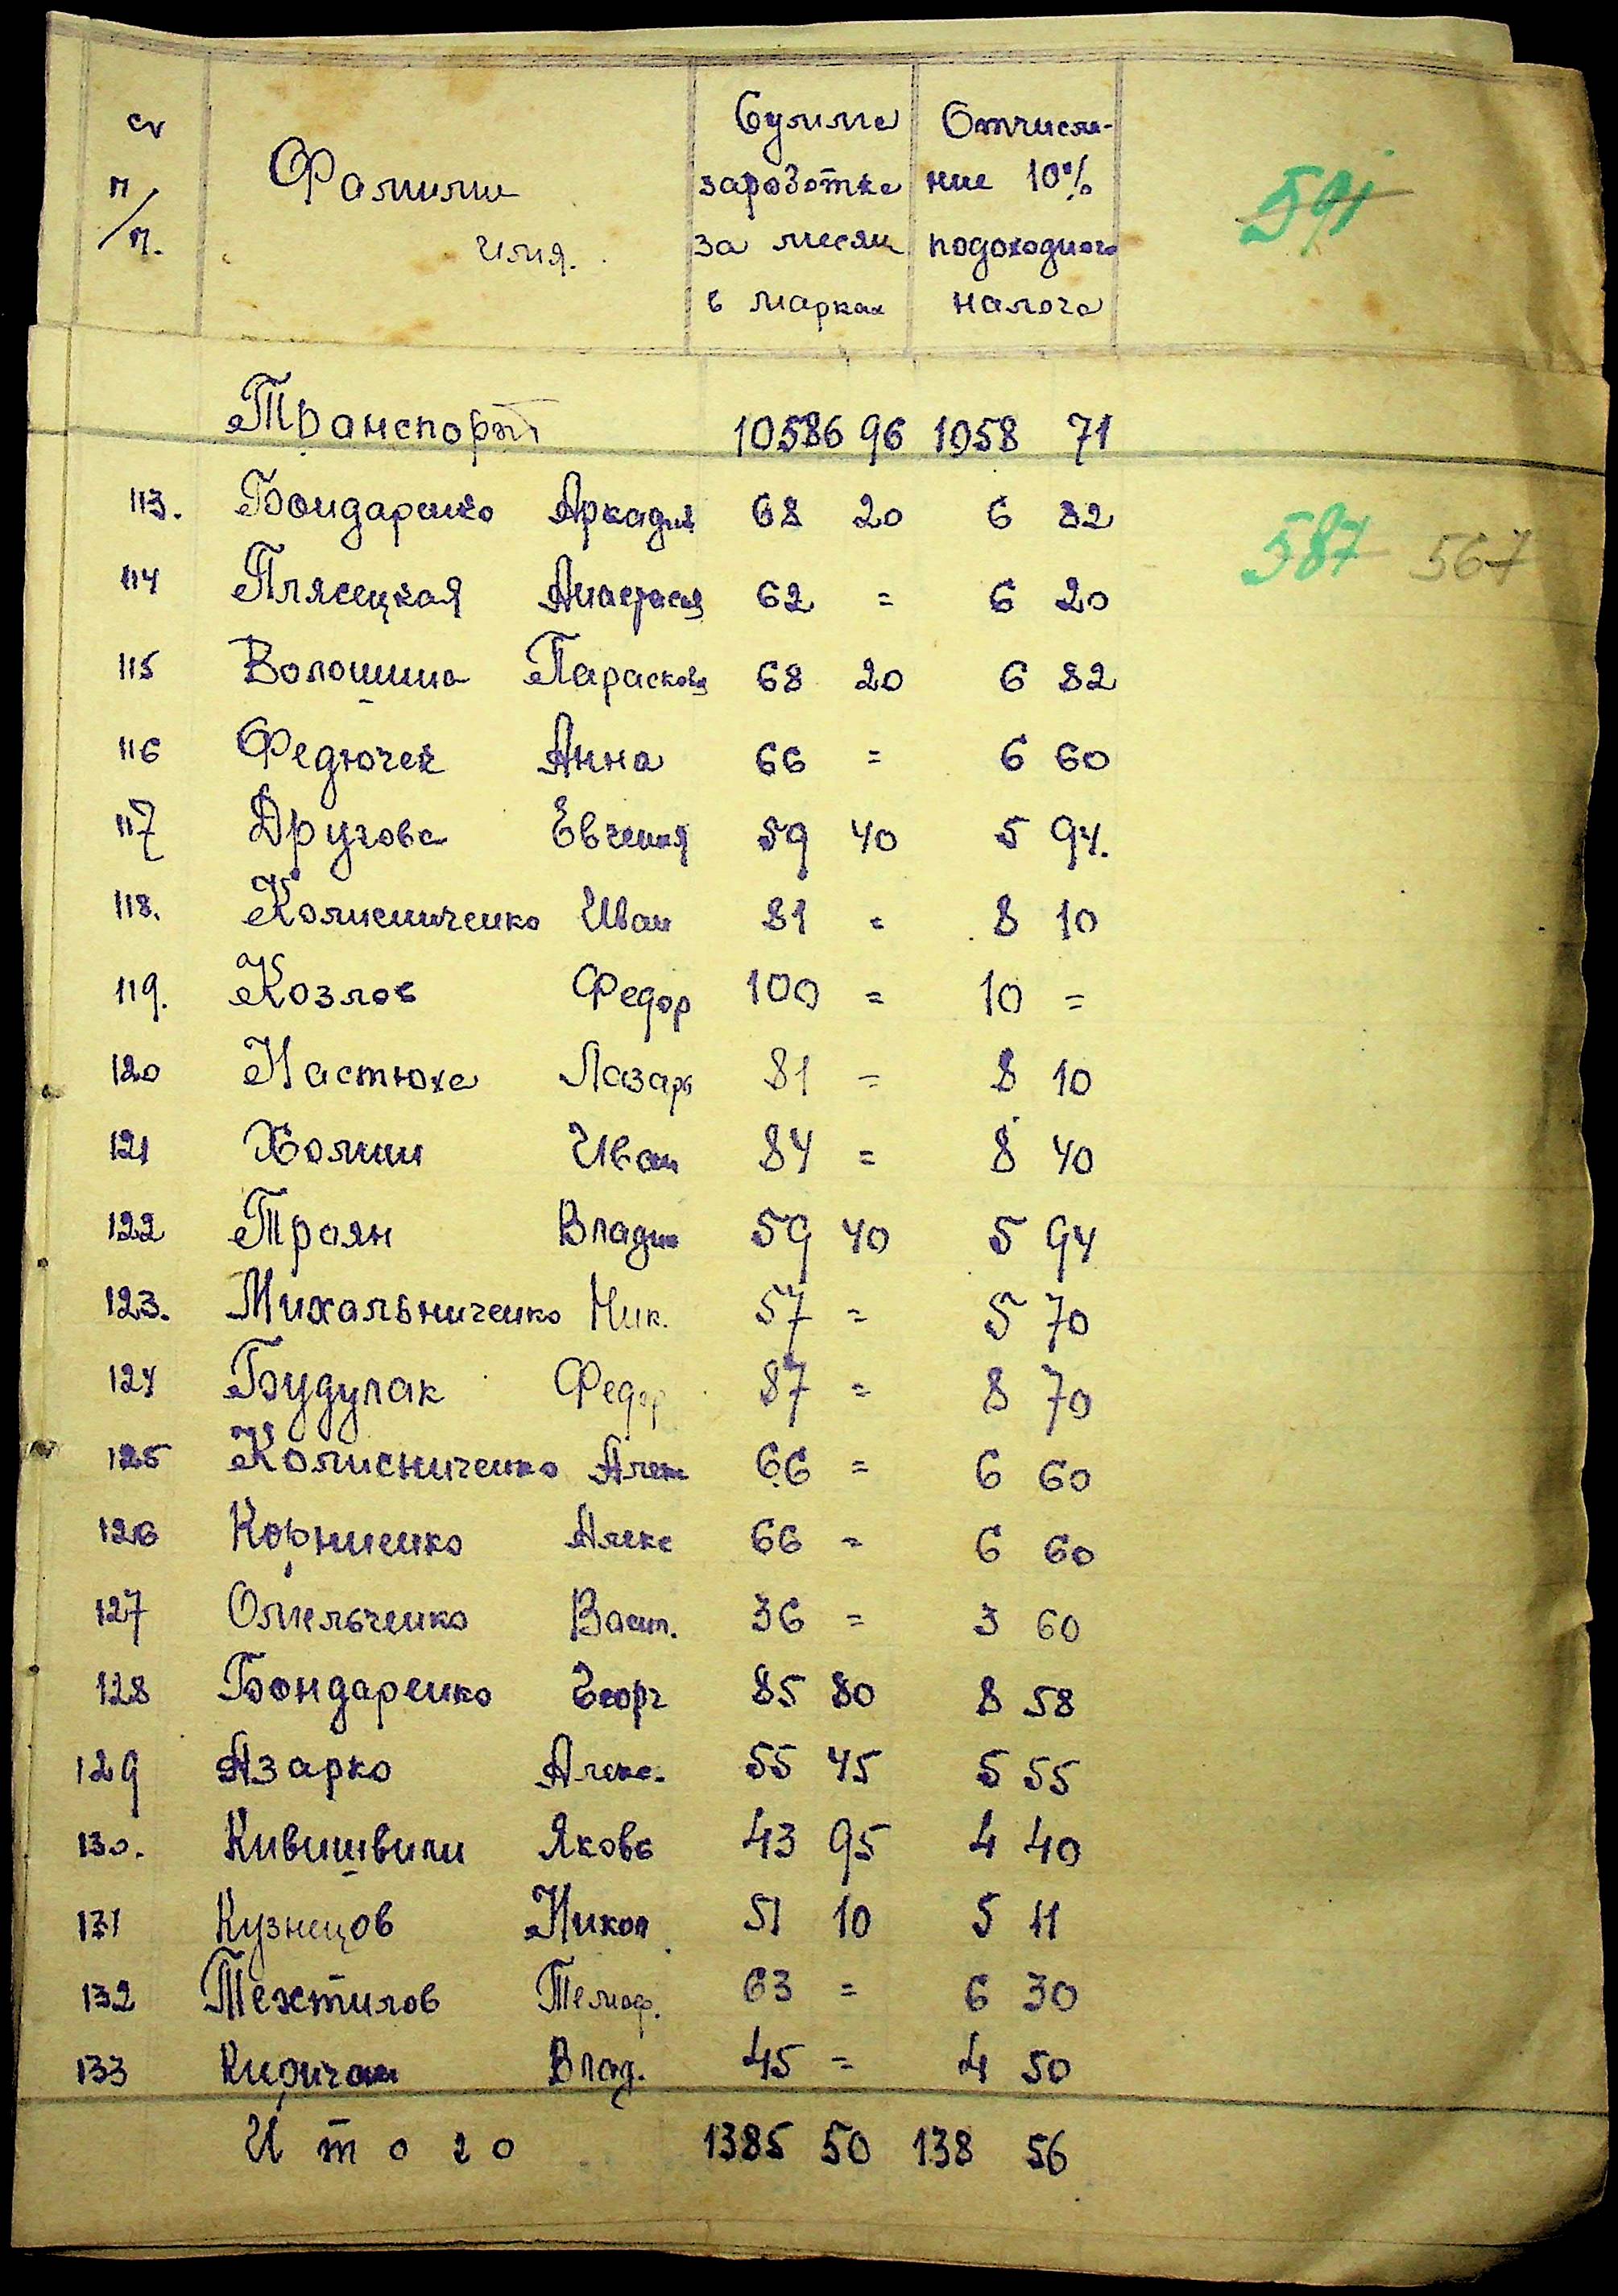 № п/п.
Фамилия имя.
Сумма заработка за месяц в марках
Отчисление 10% подоходного налога
591
Транспорт 10586 96 1058 71
113. Бондаренко Аркадий 68 20 6 82
587 567
114 Плясецкая Анастасия 62 = 6 20
115 Волошина Парасковия 68 20 6 82
116 Федючек Анна 66 = 6 60
117 Другова Евгения 59 40 5 94.
118. Колисниченко Иван 81 = 8 10
119. Козлов Федор 100 = 10 =
120 Настюха Лазарь 81 = 8 10
121 Холин Иван 84 = 8 40
122 Троян Владим 59 40 5 94
123. Михальниченко Ник. 57 = 5 70
124 Будулак Федор 87 = 8 70
125 Колисниченко Алекс 66 = 6 60
126 Корниенко Алекс 66 = 6 60
127 Омельченко Васил. 36 = 3 60
128 Бондаренко Георг 85 80 8 58
129 Азарко Алекс. 55 45 5 55
130. Кивишвили Якова 43 95 4 40
131 Кузнецов Никол 51 10 5 11
132 Техтилов Тимоф. 63 = 6 30
133 Киричан Влад. 45 = 4 50
Итого 1385 50 138 56